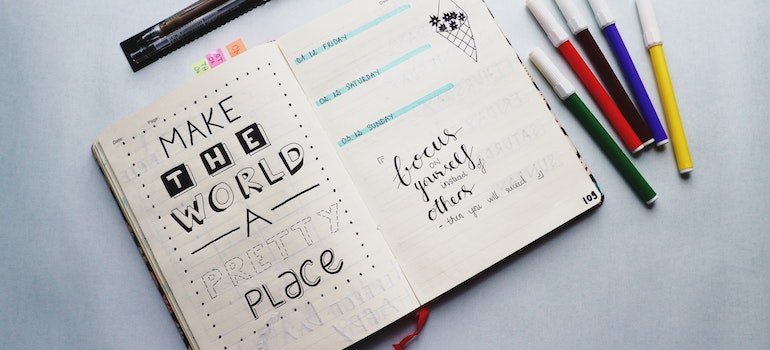 Date: Page:
MAKE
THE
WORLD
A
PRETTY
Place
01.12 FRIDAY
02.12 SATURDAY
03.12 SUNDAY
focus
on
yourself
instead of
others
- then you will succeed
109